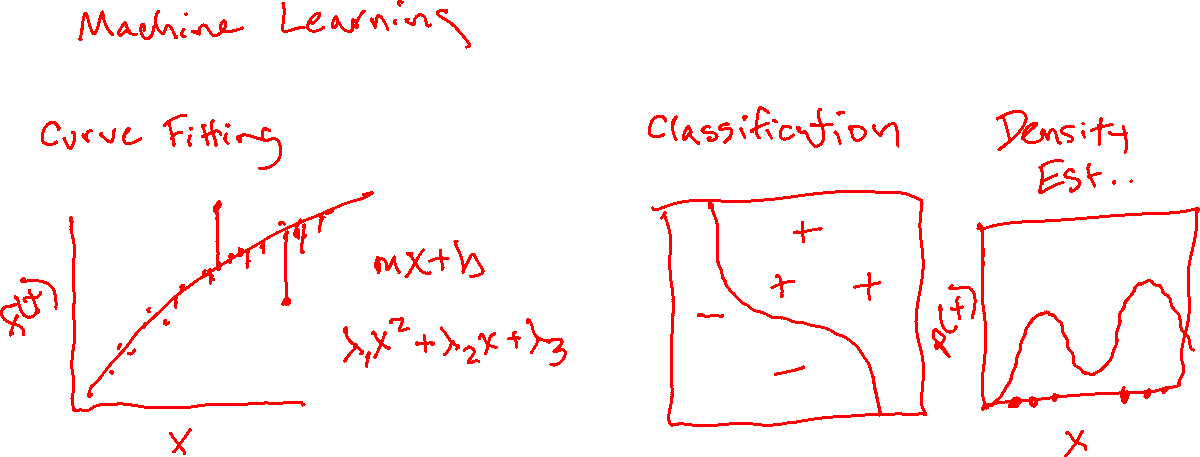 Machine Learning
Curve Fitting
mx+b
λ₁x²+λ₂x+λ₃
x
Classification
+
+ +
−
−
Density
Est..
x